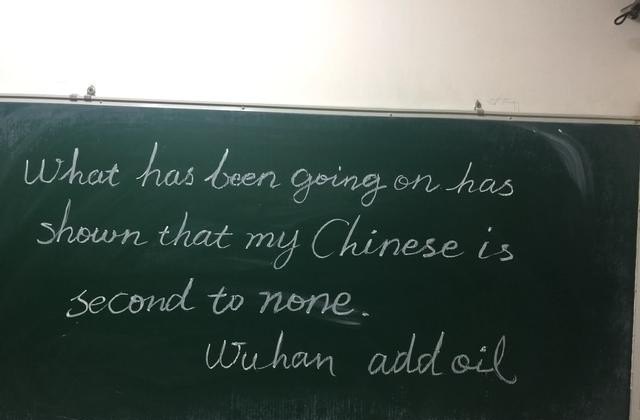 What has been going on has
shown that my Chinese is
second to none.
Wuhan add oil